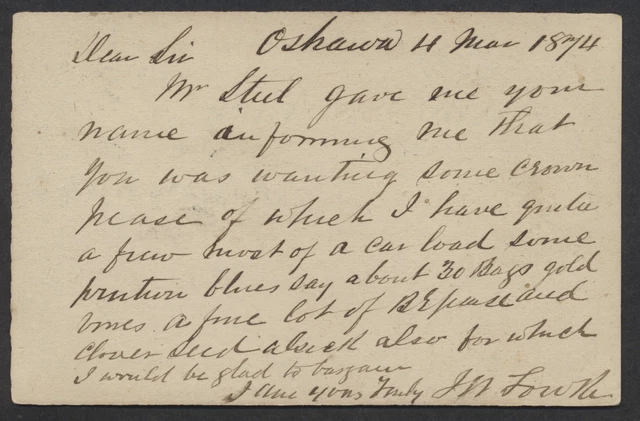 Dear Sir Oshawa 4 Mar 1874
Mr Steel gave me your
name informing me that
you was wanting some crown
pease of which I have quite
a few most of a car load some
prution blues say about 30 Bags gold
vines a fine lot of B E pease and
clover seed alsick also for which
I would be glad to bargain
I am yours Truly J W Fowke